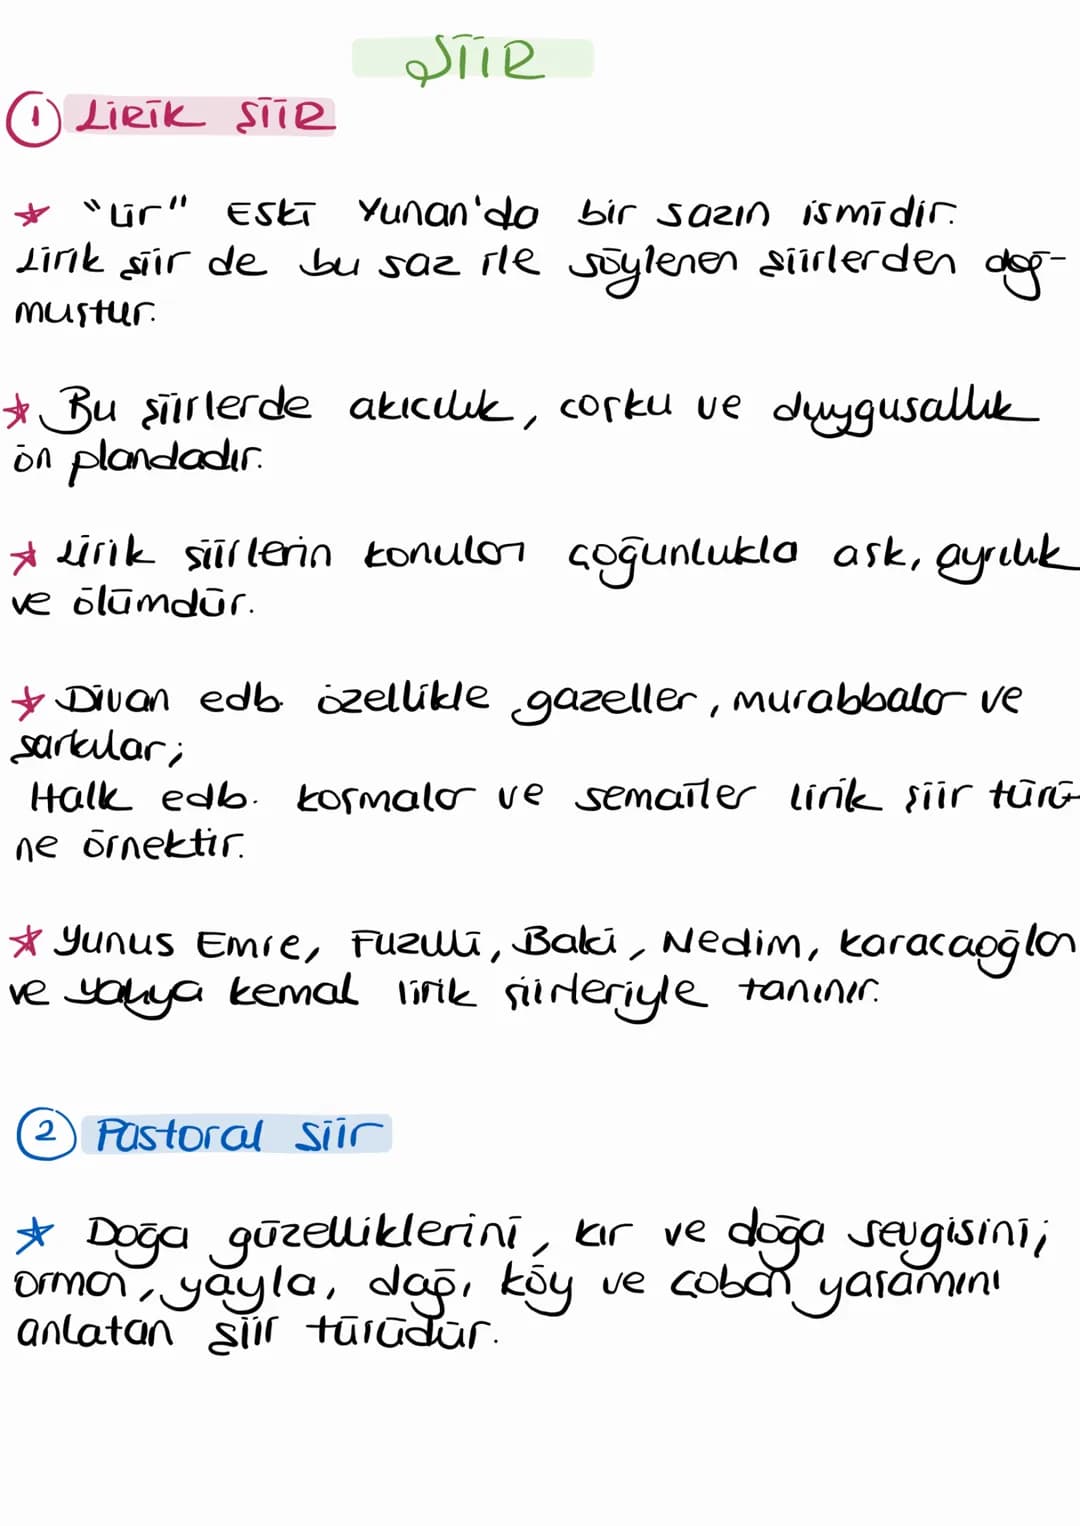 ŞİİR
1 LİRİK ŞİİR
* "Lir" Eski Yunan'da bir sazın ismidir.
Lirik şiir de bu saz ile söylenen şiirlerden doğ-
muştur.
* Bu şiirlerde akıcılık, coşku ve duygusallık
ön plandadır.
* Lirik şiirlerin konuları çoğunlukla aşk, ayrılık
ve ölümdür.
* Divan edb. özellikle gazeller, murabbalar ve
şarkılar;
Halk edb. koşmalar ve semailer lirik şiir türü-
ne örnektir.
* Yunus Emre, Fuzuli, Baki, Nedim, Karacaoğlan
ve Yahya Kemal lirik şiirleriyle tanınır.
2 Pastoral Şiir
* Doğa güzelliklerini, kır ve doğa sevgisini;
orman, yayla, dağ, köy ve çoban yaşamını
anlatan şiir türüdür.